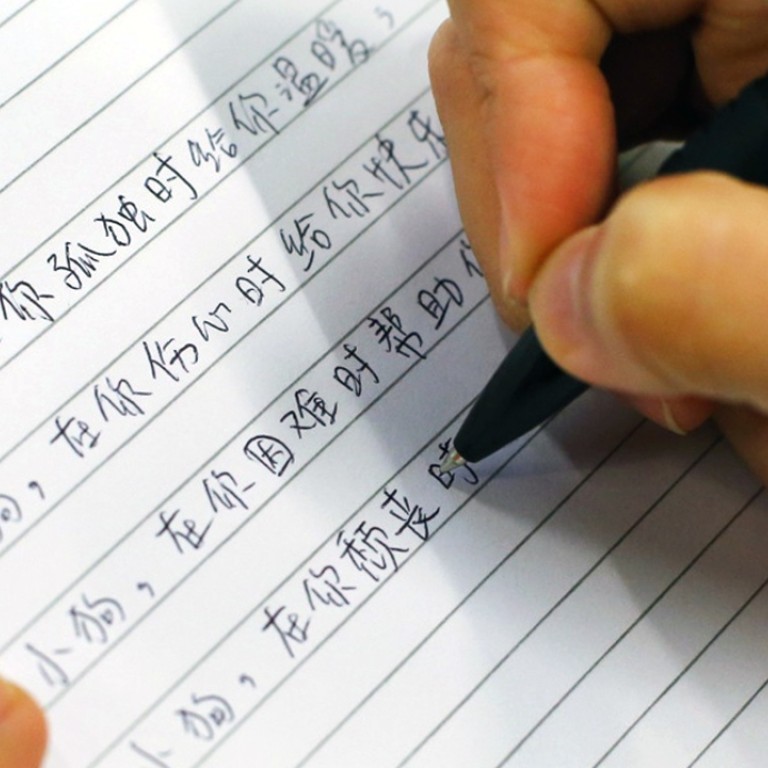 你孤独时给你温暖，
狗，在你伤心时给你快乐
小狗，在你困难时帮助
小狗，在你颓丧时